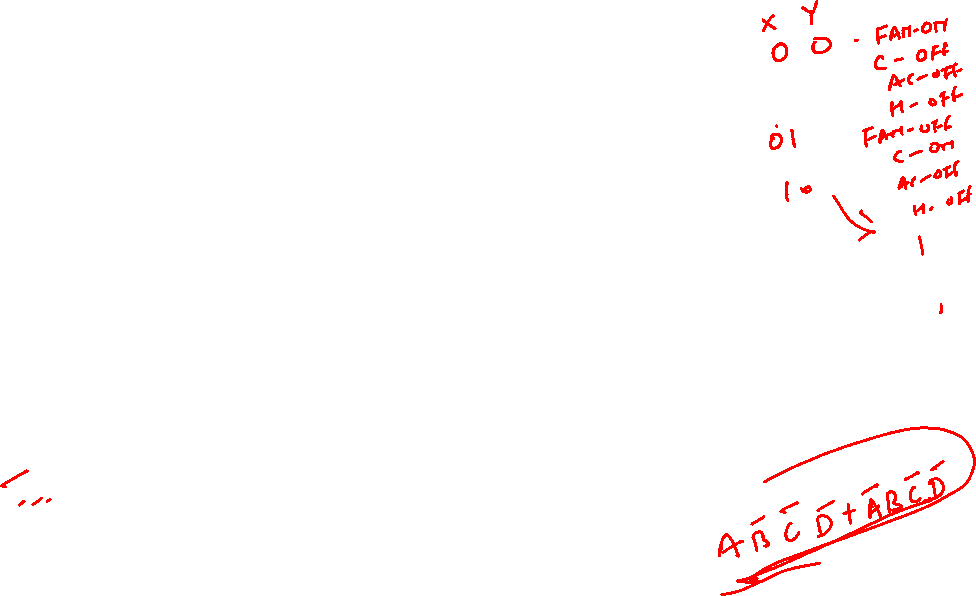 X Y
0 0 - FAN-ON
C - OFF
AC-OFF
H - OFF
01 FAN-OFF
C - ON
AC-OFF
10 H. OFF
1
AB̅C̅D̅+A̅BC̅D̅